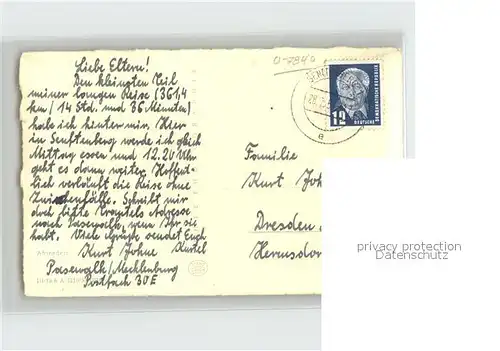 O-7840
Liebe Eltern!
Den kleinsten Teil
meiner langen Reise (361,4
km / 14 Std. und 36 Minuten)
habe ich hinter mir. Hier
in Senftenberg werde ich gleich
Mittag essen und 12.20 Uhr
geht es dann weiter. Hoffent-
lich verläuft die Reise ohne
Zwischenfälle. Schreibt mir
doch bitte Adresse
nach Pasewalk, wenn Ihr sie
habt. Viele Grüße sendet Euch
Kurt Johne Kurtel
Pasewalk/Mecklenburg
Postfach 30E
Absender:
SENF
12
DEUTSCHE
DEMOKRATISCHE REPUBLIK
a
Familie
Kurt Joh
Dresden
Hermsdor
privacy protection
Datenschutz